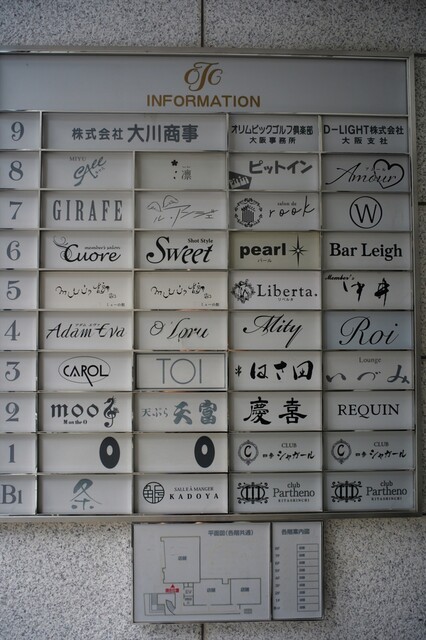 OTC
INFORMATION
9 株式会社 大川商事 オリムピックゴルフ倶楽部 大阪事務所 D-LIGHT株式会社 大阪支社
8 MIYU 一凛 ピットイン Amour
7 GIRAFE salon de rook W
6 member's salon Cuore Shot Style Sweet pearl パール Bar Leigh
5 Liberta. リベルタ Member's
4 Adam Eva Mity Roi
3 CAROL TOI はさ田 Lounge いづみ
2 moo M on the O 天ぷら 天富 慶喜 REQUIN
1 O O CLUB シャガール CLUB シャガール
B1 SALLE À MANGER KADOYA club Partheno KITASHINCHI club Partheno KITASHINCHI
平面図(各階共通) 各階案内図